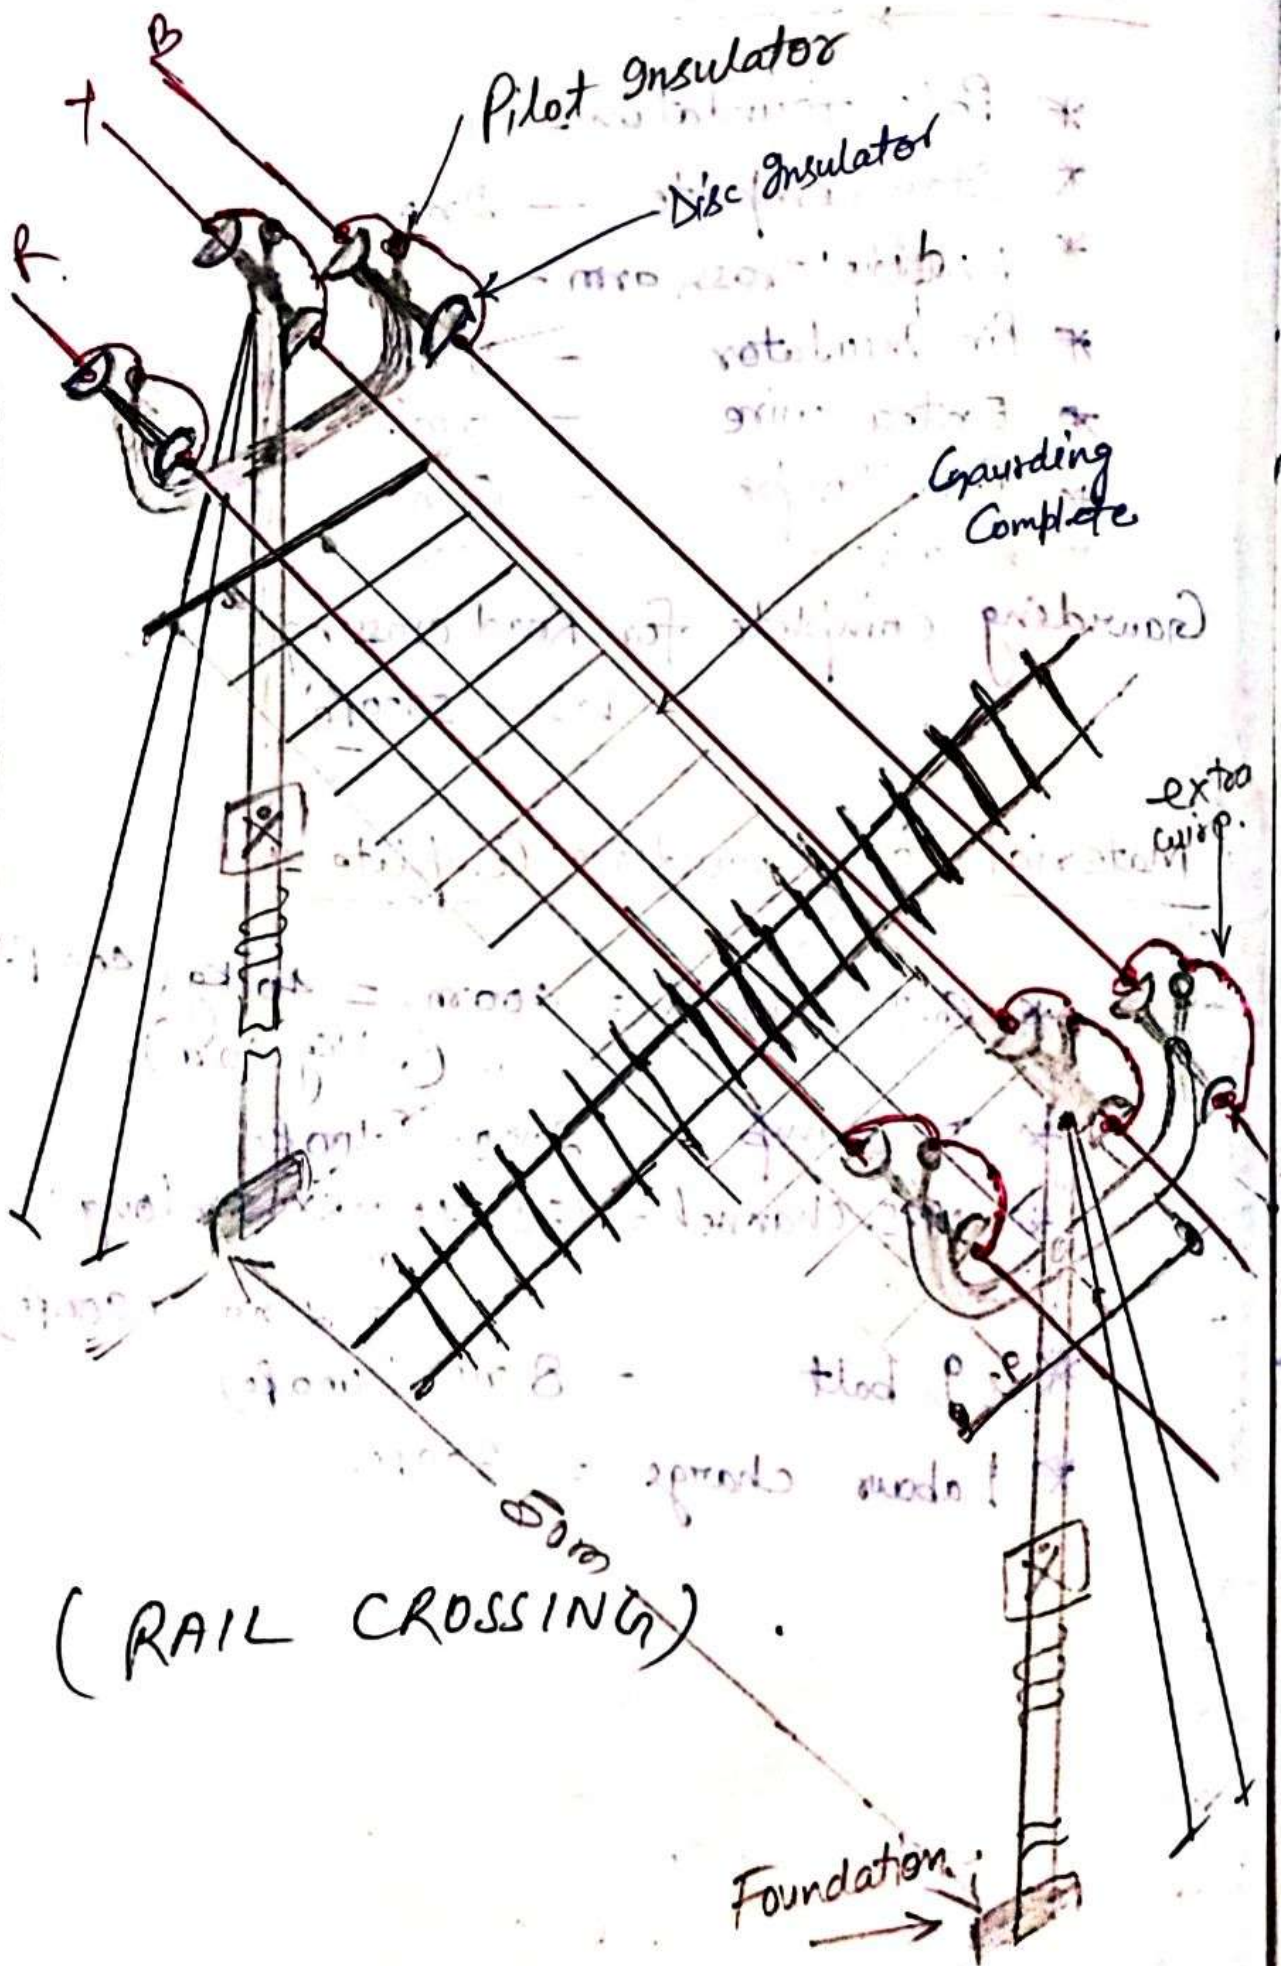 B
R
Pilot Insulator
Disc Insulator
Gaurding
Complete
extra
wire.
(RAIL CROSSING).
Foundation